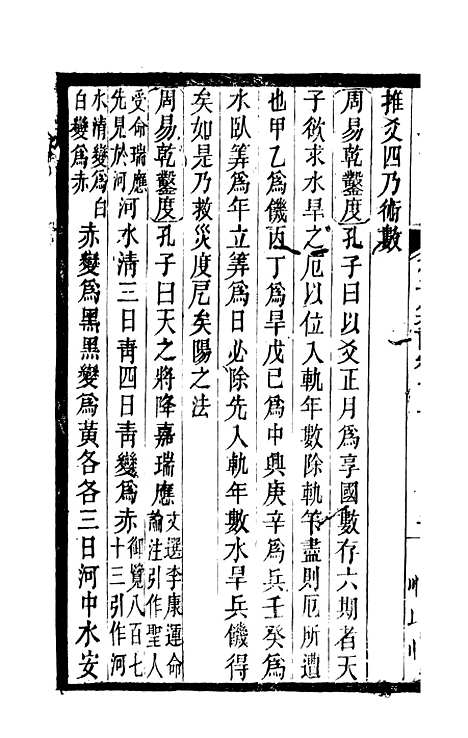 推爻四乃術數
周易乾鑿度孔子曰以爻正月爲享國數存六期者天
子欲求水旱之厄以位入軌年數除軌筭盡則厄所遭
也甲乙爲饑丙丁爲旱戊巳爲中興庚辛爲兵壬癸爲
水臥筭爲年立筭爲日必除先入軌年數水旱兵饑得
矣如是乃救災度厄矣陽之法
周易乾鑿度孔子曰天之將降嘉瑞應文選李康運命論注引作聖人
受命瑞應先見於河河水清三日靑四日靑變爲赤御覽八百七十三引作河
水清變爲白白變爲赤赤變爲黑黑變爲黃各各三日河中水安